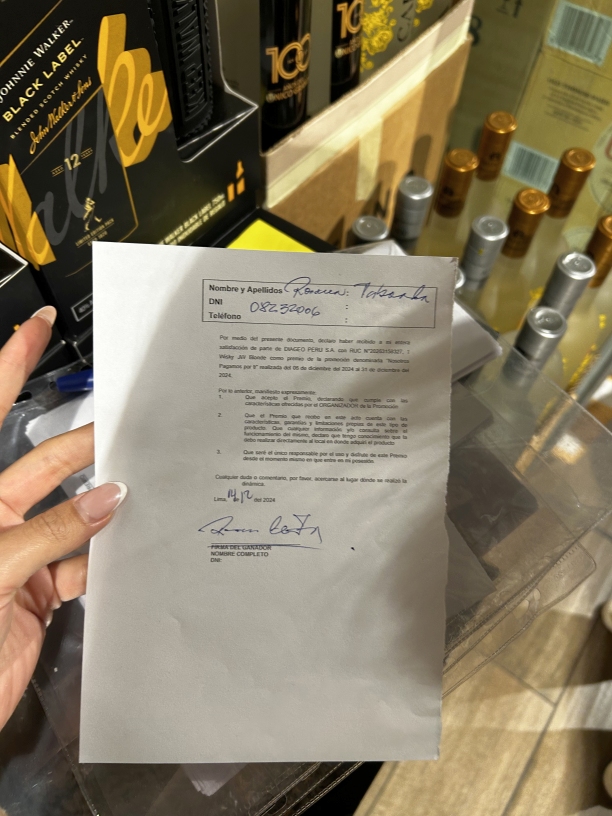 JOHNNIE WALKER
BLACK LABEL
BLENDED SCOTCH WHISKY
John Walker & Sons
12
100
100
Nombre y Apellidos :
DNI 08232006 :
Teléfono :
Por medio del presente documento, declaro haber recibido a mi entera
satisfacción de parte de DIAGEO PERU S.A. con RUC
Wisky JW Blonde como premio de la promoción denominada "Nosotros
Pagamos por ti" realizada del 05 de diciembre del 2024 al 31 de diciembre del
2024.
Por lo anterior, manifiesto expresamente:
1. Que acepto el Premio, declarando que cumple con las
características ofrecidas por el ORGANIZADOR de la Promoción
2. Que el Premio que recibo en este acto cuenta con las
características, garantías y limitaciones propias de este tipo de
producto. Que cualquier información y/o consulta sobre el
funcionamiento del mismo, declaro que tengo conocimiento que la
debo realizar directamente al local en donde adquirí el producto
3. Que seré el único responsable por el uso y disfrute de este Premio
desde el momento mismo en que entre en mi posesión.
Cualquier duda o comentario, por favor, acercarse al lugar dónde se realizó la
dinámica.
Lima, 14 de 12 del 2024
FIRMA DEL GANADOR
NOMBRE COMPLETO
DNI: